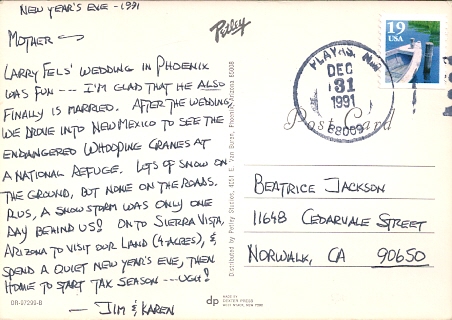 NEW YEAR'S EVE - 1991
MOTHER
LARRY FELS' WEDDING IN PHOENIX
WAS FUN --- I'M GLAD THAT HE ALSO
FINALLY IS MARRIED. AFTER THE WEDDING,
WE DROVE INTO NEW MEXICO TO SEE THE
ENDANGERED WHOOPING CRANES AT
A NATIONAL REFUGE. LOTS OF SNOW ON
THE GROUND, BUT NONE ON THE ROADS.
PLUS, A SNOW STORM WAS ONLY ONE
DAY BEHIND US! ON TO SIERRA VISTA,
ARIZONA TO VISIT OUR LAND (4-ACRES), &
SPEND A QUIET NEW YEAR'S EVE, THEN
HOME TO START TAX SEASON --- UGH!
— JIM & KAREN
DR-97290-B
Petley
Distributed by Petley Studios, 4051 E. Van Buren, Phoenix, Arizona 85008
dp
MADE BY
DEXTER PRESS
WEST NYACK, NEW YORK
PLAYAS, N.M.
DEC
31
1991
88009
19
USA
Post Card
BEATRICE JACKSON
11648 CEDARVALE STREET
NORWALK, CA 90650